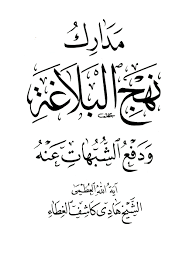 مدارك
نهج البلاغة
ودفع الشبهات عنه
آية الله العظمى
الشيخ هادي كاشف الغطاء